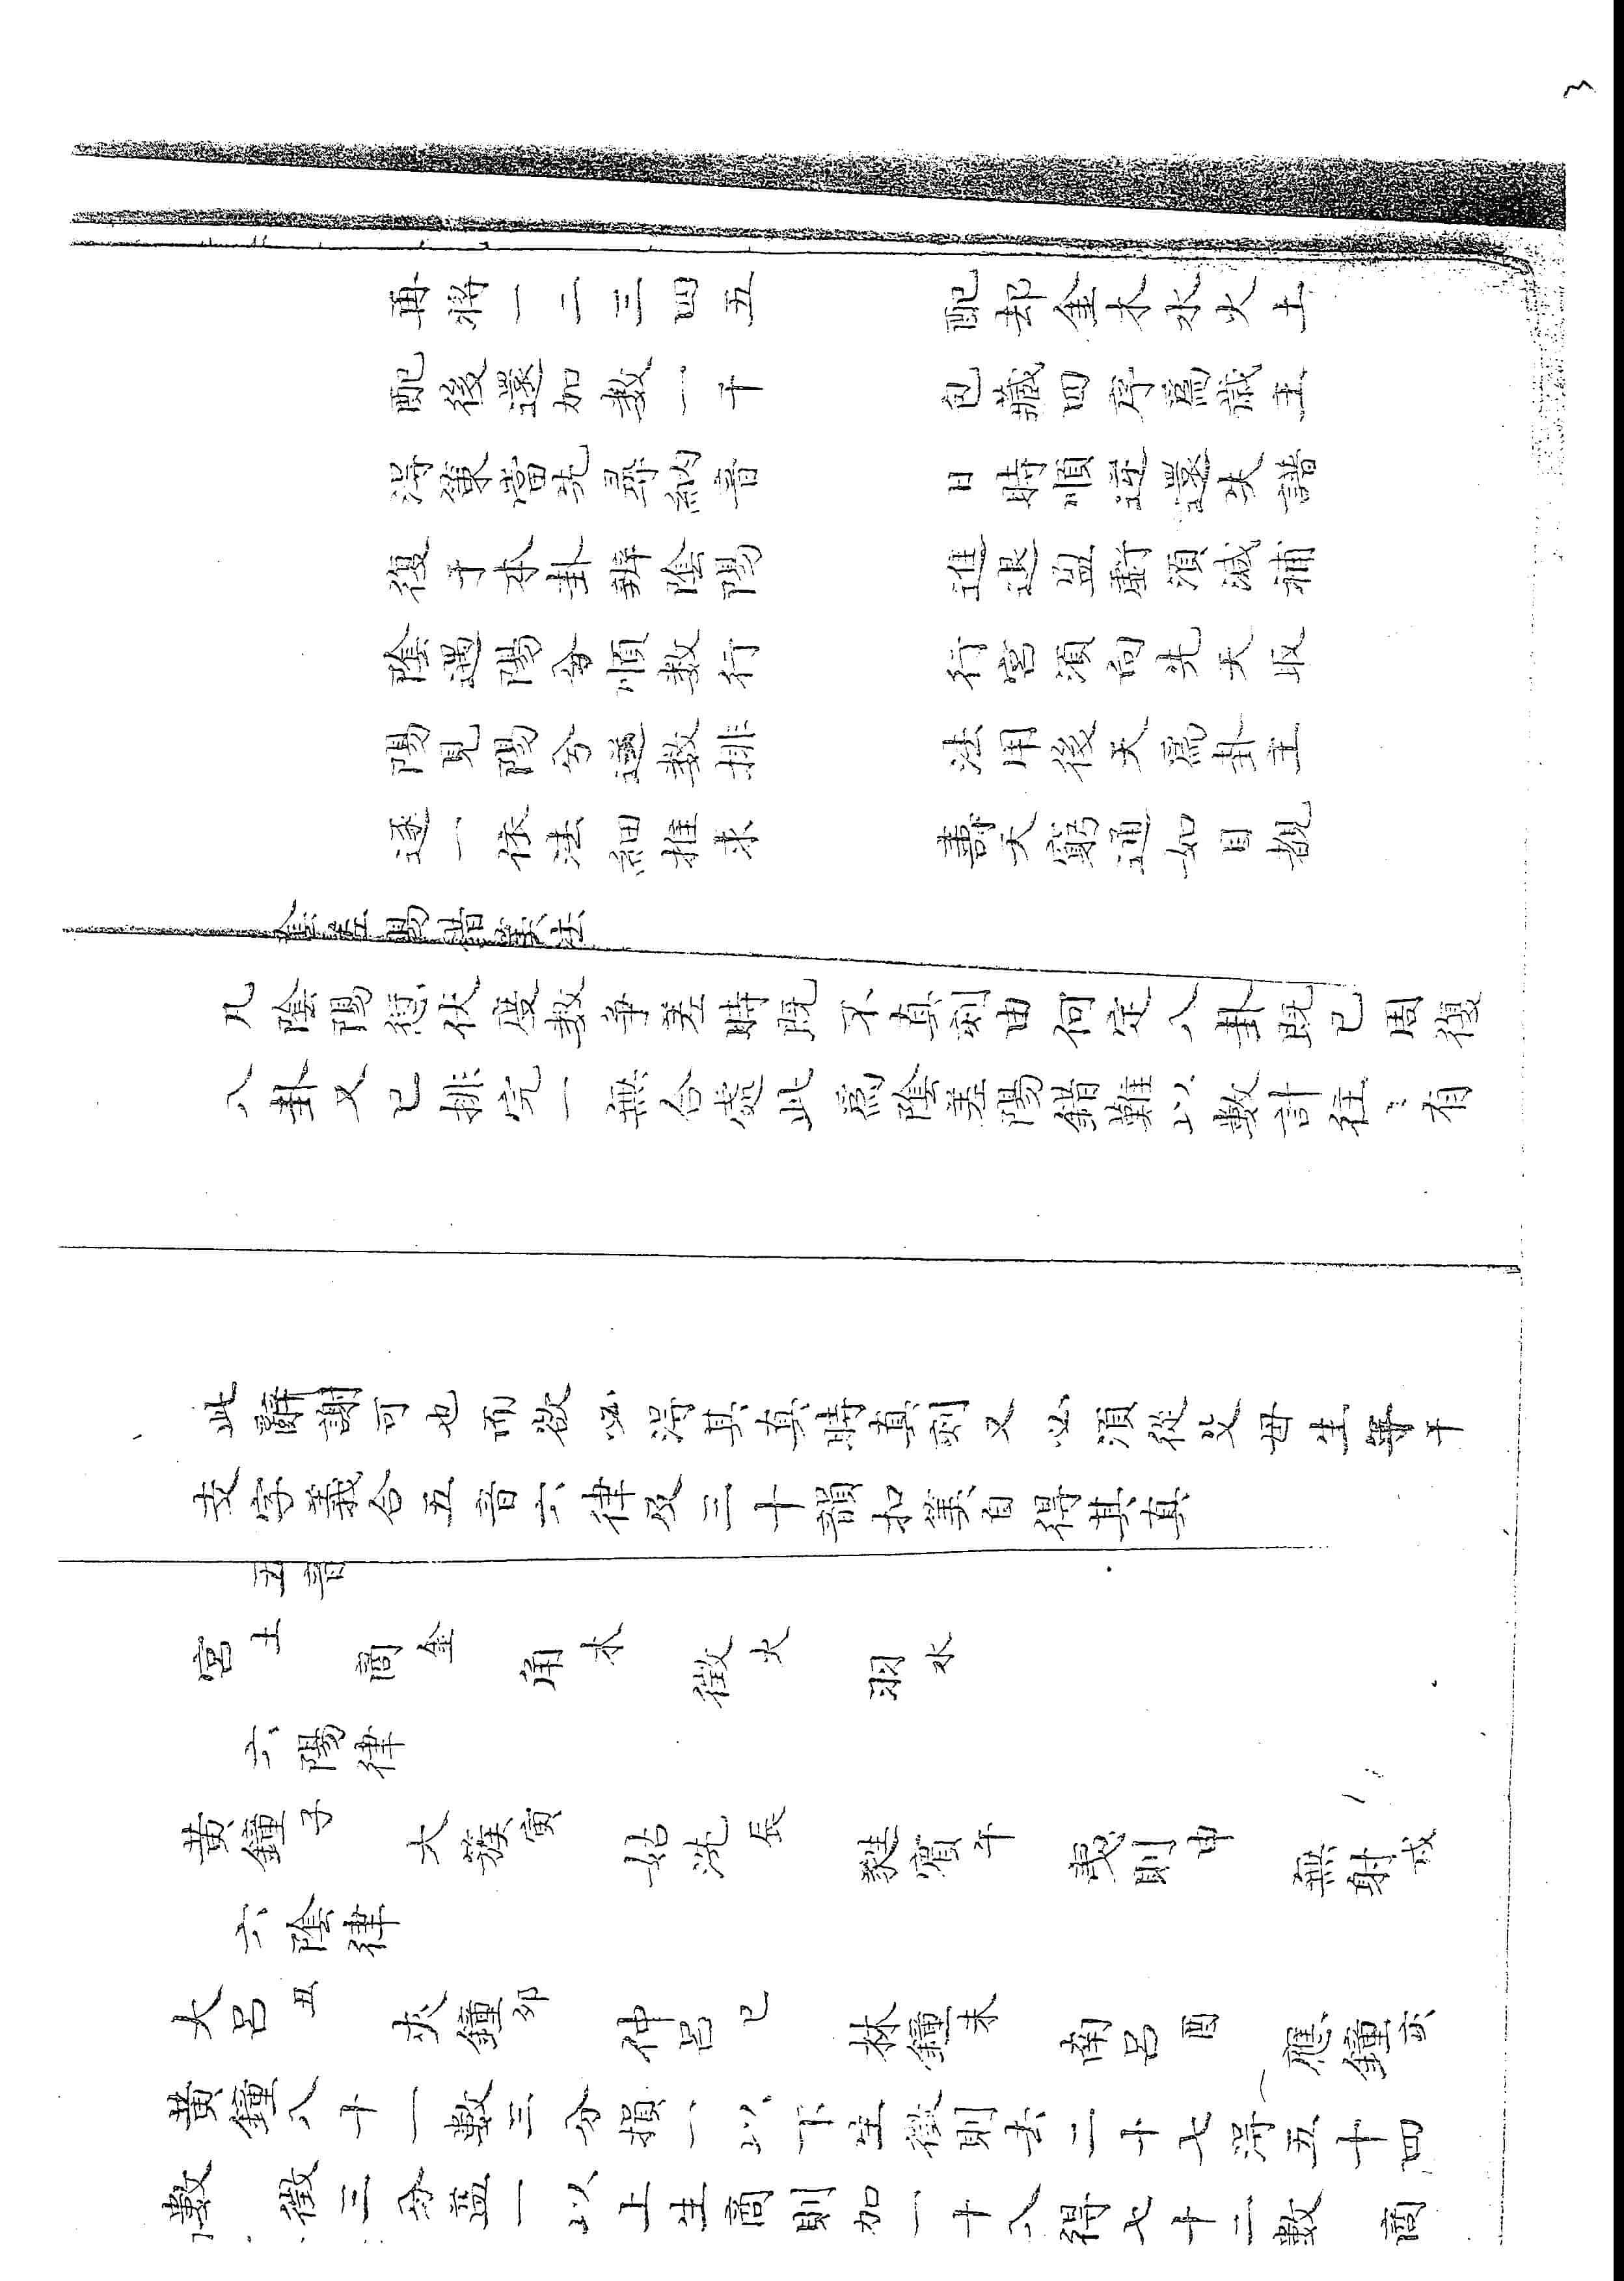 再將一二三四五　配却金木水火土
配後還加數一千　包藏四序爲歲主
得策當先尋納音　日時順逆還失譜
復于本卦辨陰陽　進退盈虧須減補
陰遇陽兮順數行　行宮須向先天取
陽見陽兮逆數排　法用後天爲卦主
逐一依法細推求　壽夭窮通如目覩
陰差陽錯算法
凡陰陽愆伏度數爭差時既不真刻由何定八卦既已周復
八卦又已排完一無合處此爲陰差陽錯難以數計往〻有
此辭謝可也而欲必得其真時真刻又必須從父母生年干
支字義合五音六律及三十韻扣算自得其真
五音
宮土　商金　角木　徵火　羽水
六陽律
黃鐘子　大簇寅　姑洗辰　蕤賓午　夷則申　無射戌
六陰律
大呂丑　夾鐘卯　仲呂巳　林鐘未　南呂酉　應鐘亥
黃鐘八十一數三分損一以下生徵則去二十七得五十四
數　徵三分益一以上生商則加一十八得七十二數　商